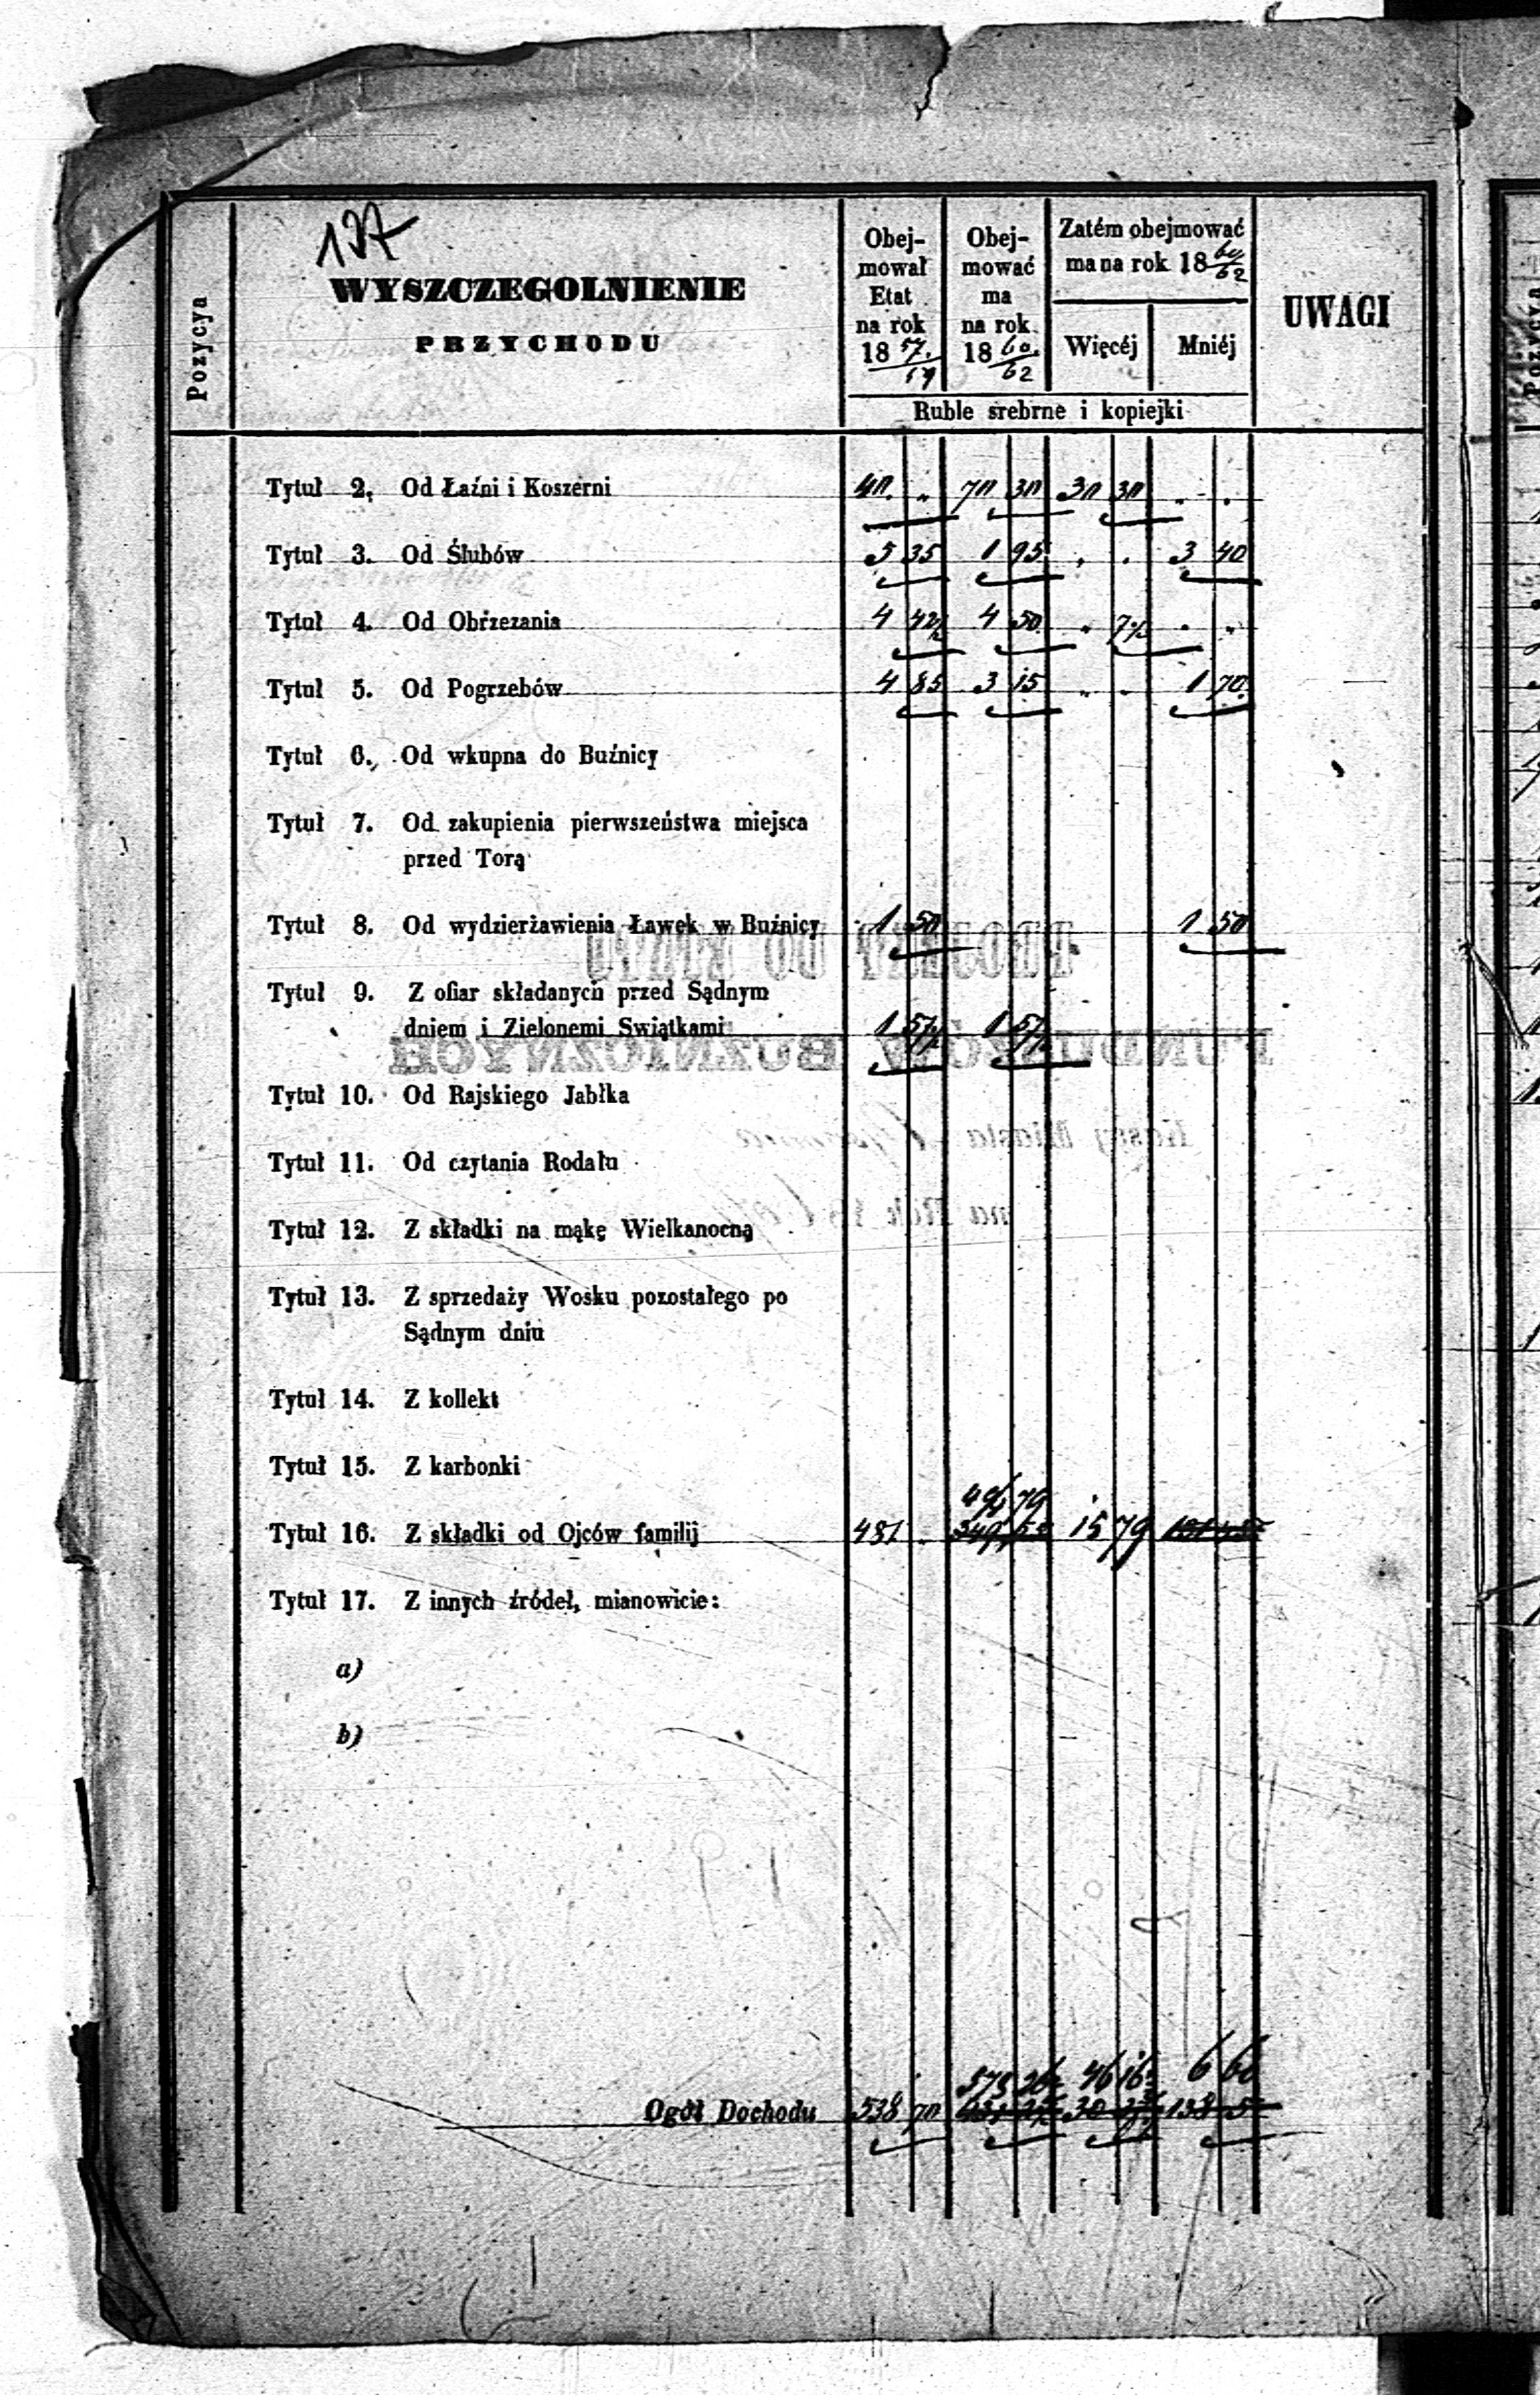 137
Pozycya
WYSZCZEGOLNIENIE
PRZYCHODU
Obej-
mował
Etat
na rok
18 57/59
Obej-
mować
ma
na rok
18 60/62
Zatém obejmować
ma na rok 18 60/62
Więcéj Mniéj
UWAGI
Ruble srebrne i kopiejki
Tytuł 2. Od Łaźni i Koszerni 40 „ 70 30 30 30 . .
Tytuł 3. Od Ślubów 5 35 1 95 . . 3 40
Tytuł 4. Od Obrzezania 4 42½ 4 50 „ 7½ . „
Tytuł 5. Od Pogrzebów 4 85 3 15 „ . 1 70
Tytuł 6. Od wkupna do Buźnicy
Tytuł 7. Od zakupienia pierwszeństwa miejsca
przed Torą
Tytuł 8. Od wydzierżawienia Ławek w Buźnicy 1 50 1 50
Tytuł 9. Z ofiar składanych przed Sądnym
dniem i Zielonemi Swiątkami 1 57½ 1 57½
Tytuł 10. Od Rajskiego Jabłka
Tytuł 11. Od czytania Rodału
Tytuł 12. Z składki na mąkę Wielkanocną
Tytuł 13. Z sprzedaży Wosku pozostałego po
Sądnym dniu
Tytuł 14. Z kollekt
Tytuł 15. Z karbonki
496 79
Tytuł 16. Z składki od Ojców familij 481 . 15 79
Tytuł 17. Z innych źródeł, mianowicie:
a)
b)
578 26½ 46 16½ 6 60
Ogół Dochodu 538 70 138 5